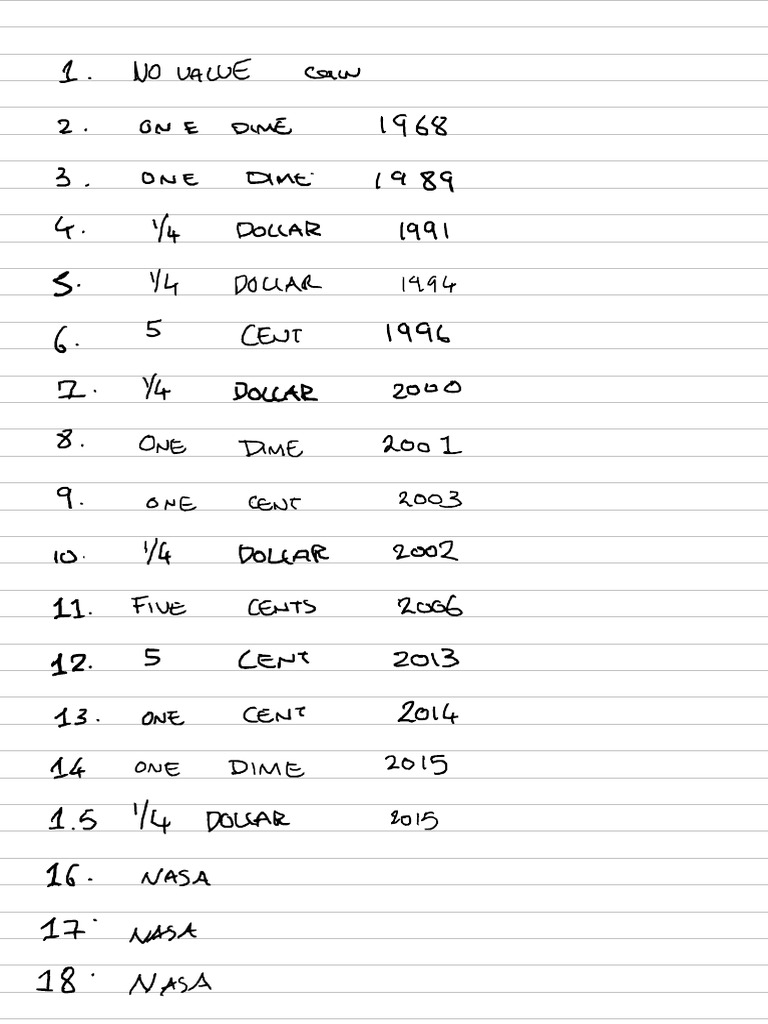 1. NO VALUE COIN
2. ONE DIME 1968
3. ONE DIME 1989
4. 1/4 DOLLAR 1991
5. 1/4 DOLLAR 1994
6. 5 CENT 1996
7. 1/4 DOLLAR 2000
8. ONE DIME 2001
9. ONE CENT 2003
10. 1/4 DOLLAR 2002
11. FIVE CENTS 2006
12. 5 CENT 2013
13. ONE CENT 2014
14 ONE DIME 2015
1.5 1/4 DOLLAR 2015
16. NASA
17. NASA
18. NASA